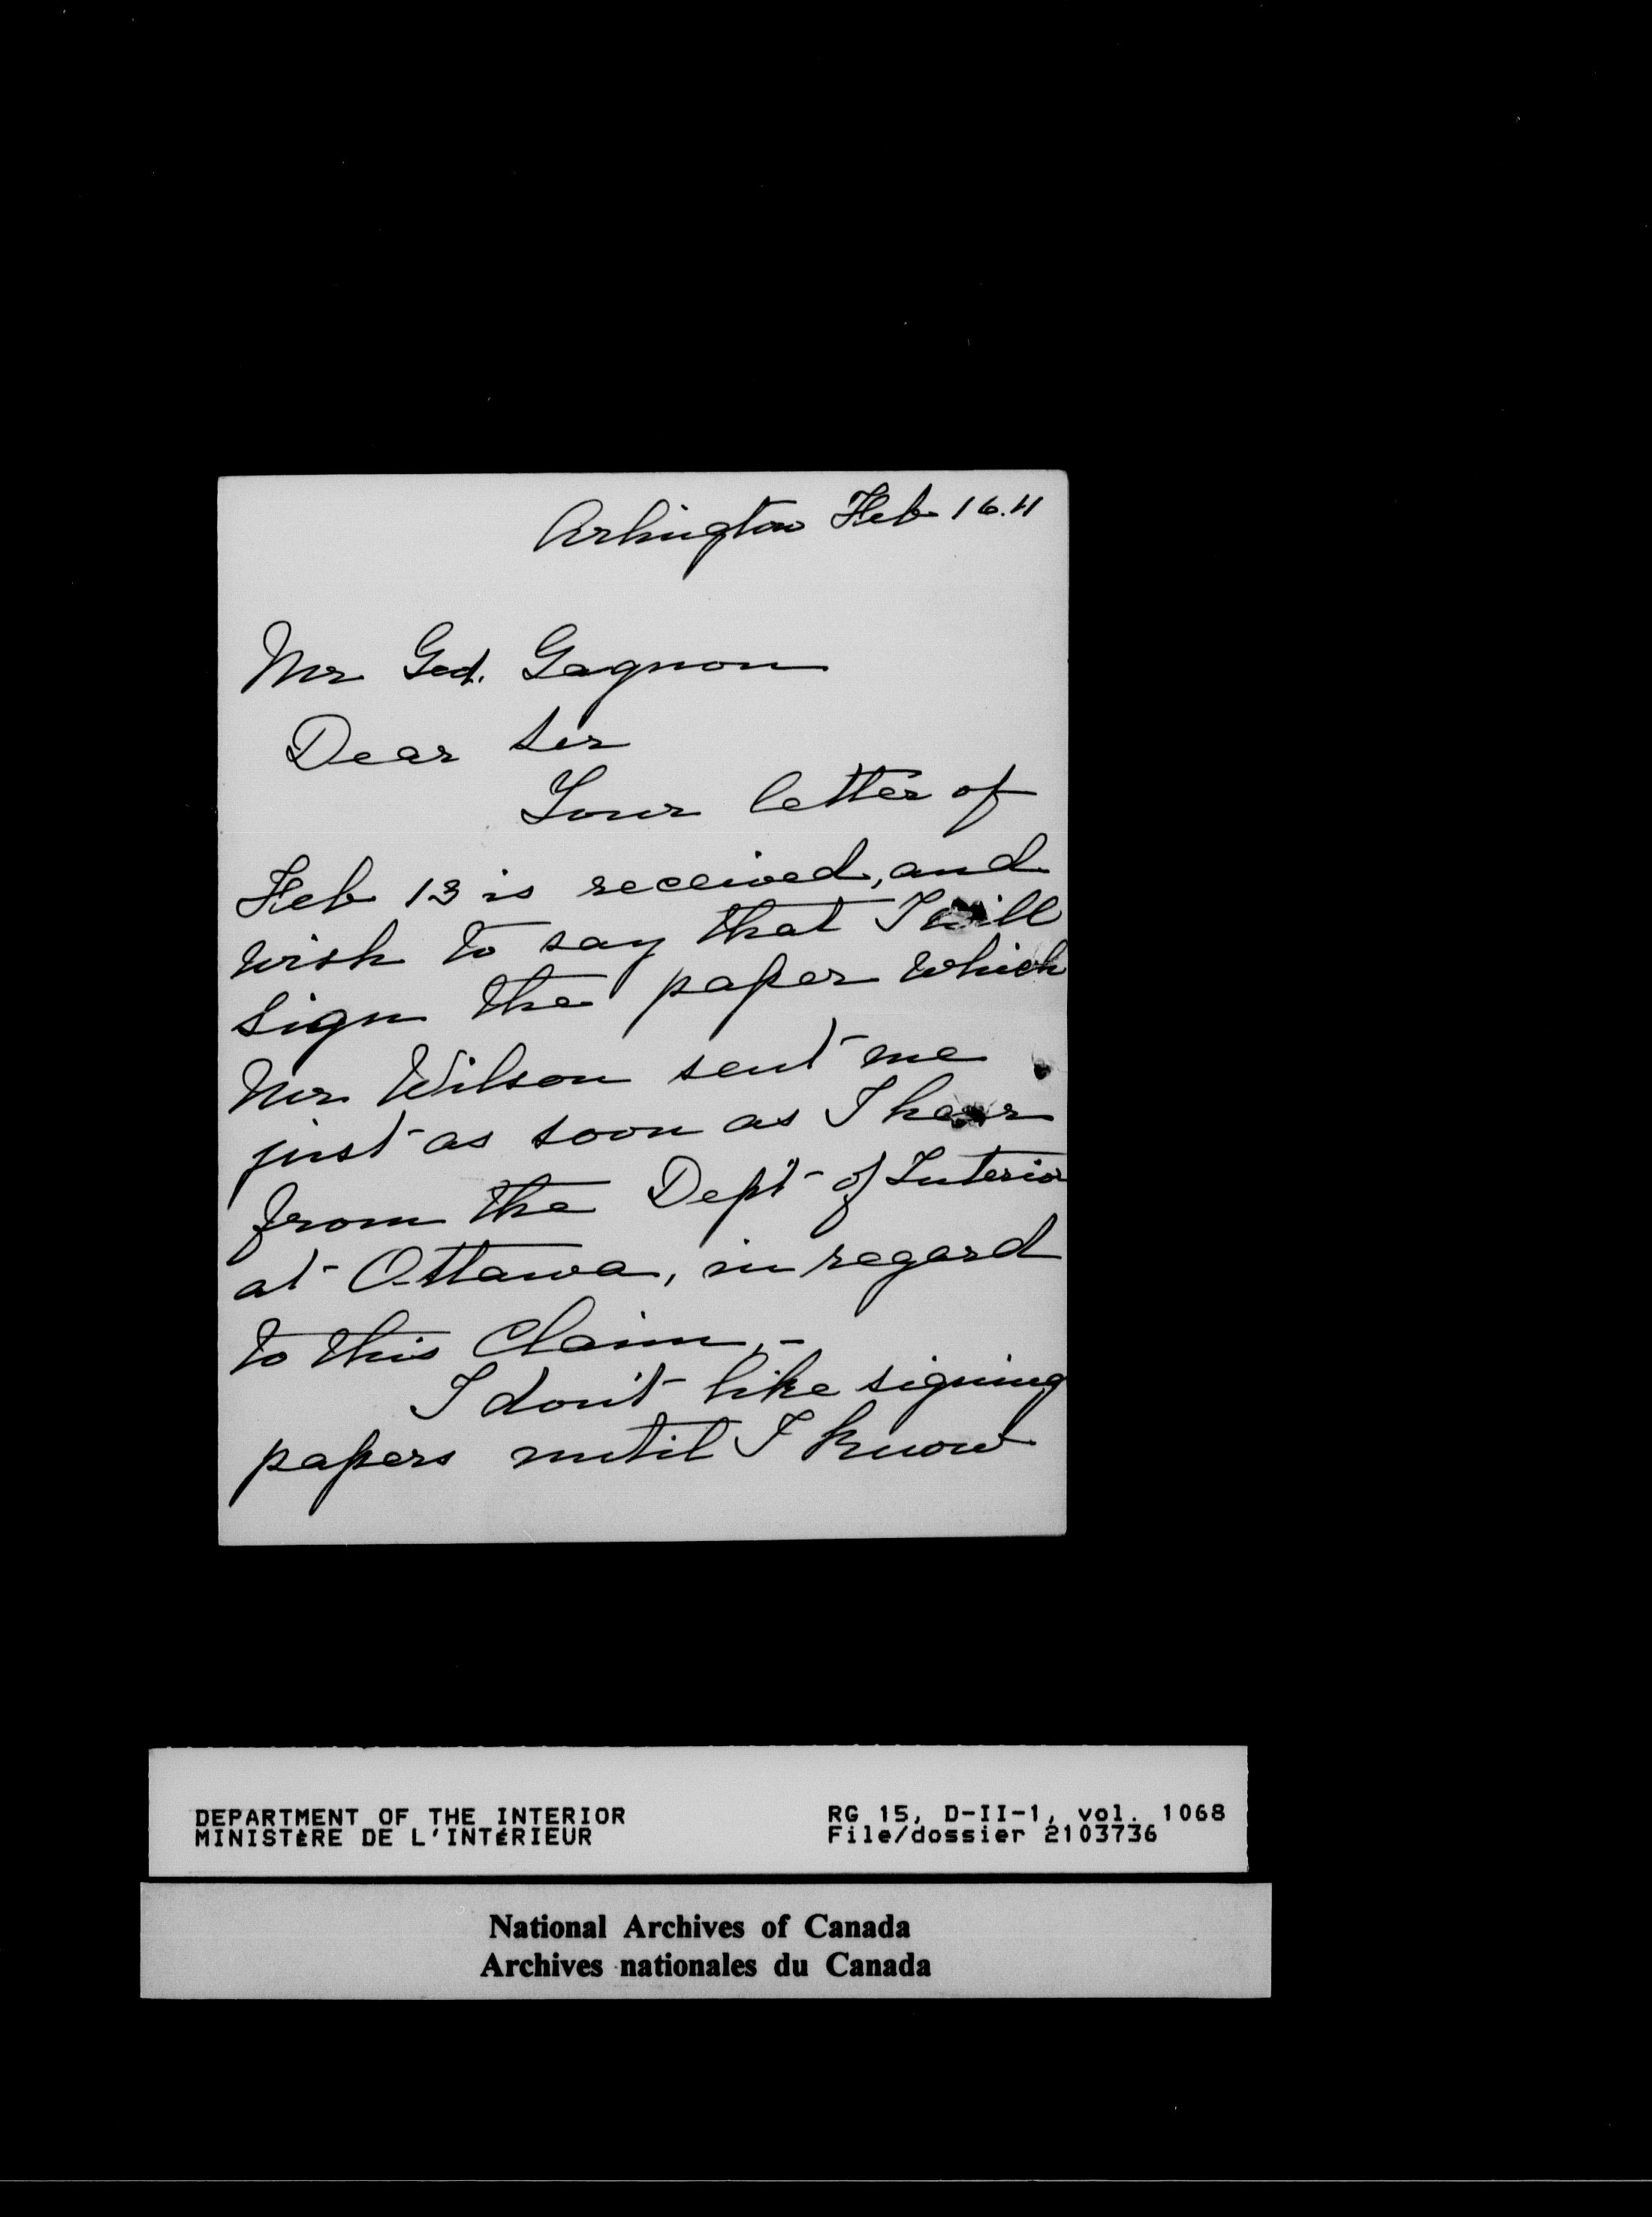 Arlington Feb 16.11
Mr Ged. Gagnon
Dear Sir
Your letter of
Feb 13 is received, and
wish to say that I will
sign the paper which
Mr Wilson sent me
just as soon as I hear
from the Dep't of Interior
at Ottawa, in regard
to this Claim,-
I don't like signing
papers until I know
DEPARTMENT OF THE INTERIOR
MINISTÈRE DE L'INTÉRIEUR
RG 15, D-II-1, vol. 1068
File/dossier 2103736
National Archives of Canada
Archives nationales du Canada